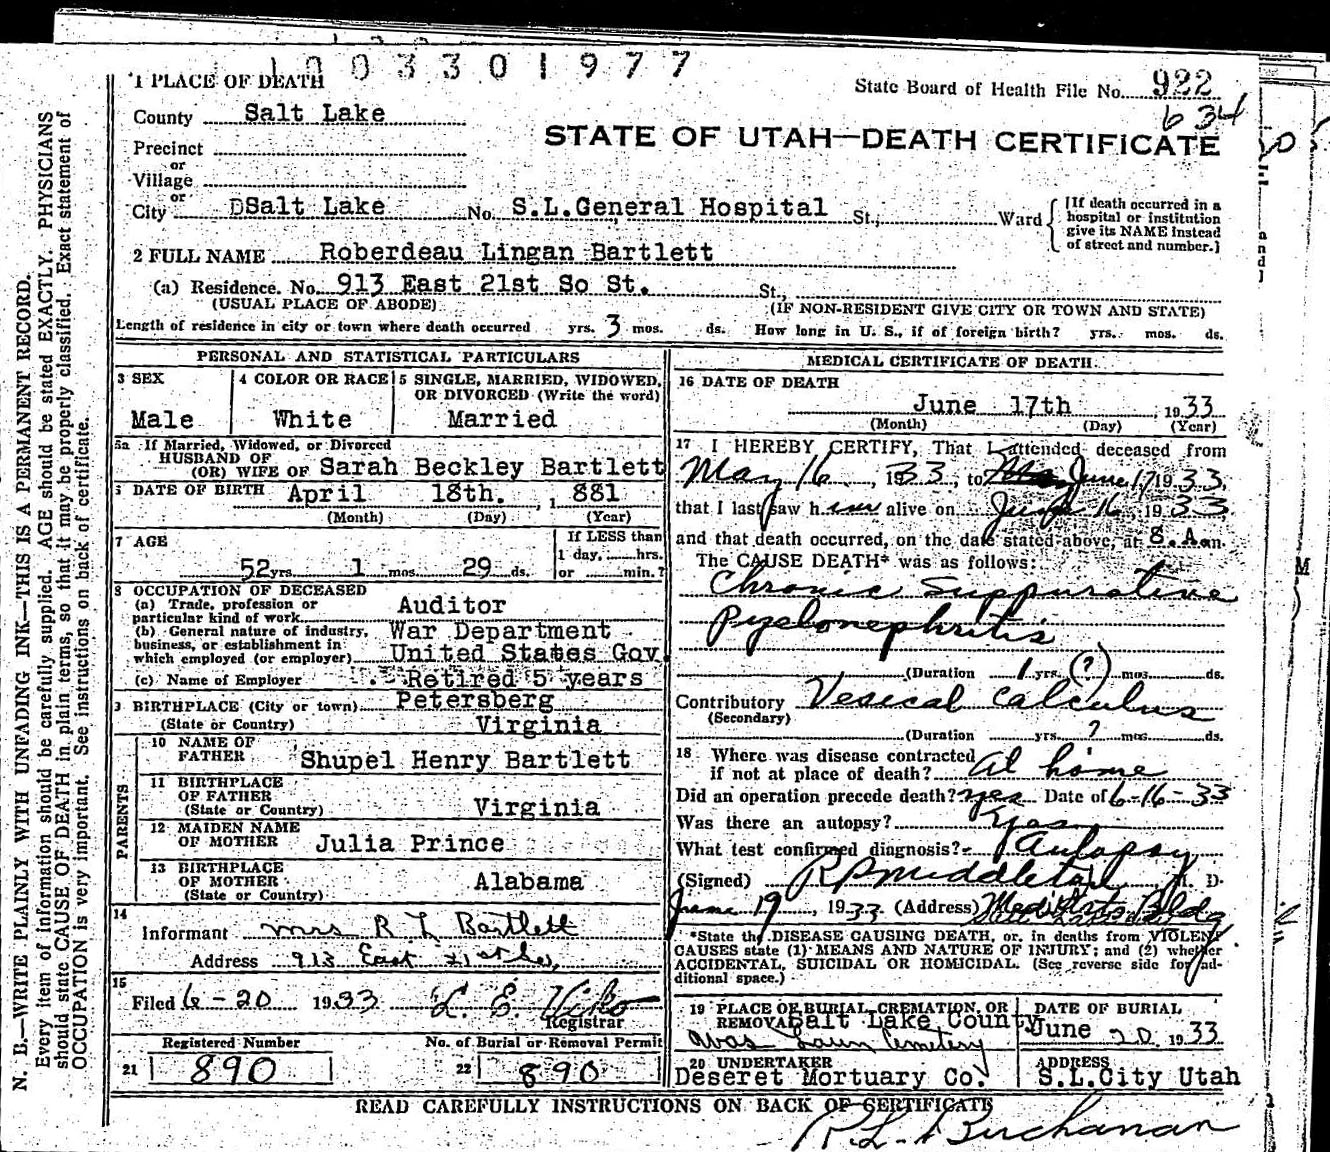 1003301977
1 PLACE OF DEATH
State Board of Health File No. 922
634
County Salt Lake
STATE OF UTAH—DEATH CERTIFICATE
Precinct
or
Village
or
City DSalt Lake No. S.L.General Hospital St., Ward
[If death occurred in a
hospital or institution
give its NAME instead
of street and number.]
2 FULL NAME Roberdeau Lingan Bartlett
(a) Residence. No. 913 East 21st So St. St.,
(USUAL PLACE OF ABODE) (IF NON-RESIDENT GIVE CITY OR TOWN AND STATE)
Length of residence in city or town where death occurred yrs. 3 mos. ds. How long in U. S., if of foreign birth? yrs. mos. ds.
PERSONAL AND STATISTICAL PARTICULARS
3 SEX
Male
4 COLOR OR RACE
White
5 SINGLE, MARRIED, WIDOWED,
OR DIVORCED (Write the word)
Married
5a If Married, Widowed, or Divorced
HUSBAND OF
(OR) WIFE OF Sarah Beckley Bartlett
6 DATE OF BIRTH April 18th. , 1881
(Month) (Day) (Year)
7 AGE
52 yrs. 1 mos. 29 ds.
If LESS than
1 day, hrs.
or min.?
8 OCCUPATION OF DECEASED
(a) Trade, profession or
particular kind of work Auditor
(b) General nature of industry,
business, or establishment in
which employed (or employer) War Department
United States Gov.
(c) Name of Employer Retired 5 years
9 BIRTHPLACE (City or town) Petersberg
(State or Country) Virginia
PARENTS
10 NAME OF
FATHER Shupel Henry Bartlett
11 BIRTHPLACE
OF FATHER
(State or Country) Virginia
12 MAIDEN NAME
OF MOTHER Julia Prince
13 BIRTHPLACE
OF MOTHER
(State or Country) Alabama
14
Informant Mrs R L Bartlett
Address 913 East 21st So,
15
Filed 6-20 1933 L. E. Viko
Registrar
Registered Number No. of Burial or Removal Permit
21 890 22 890
MEDICAL CERTIFICATE OF DEATH
16 DATE OF DEATH
June 17th , 1933
(Month) (Day) (Year)
17 I HEREBY CERTIFY, That I attended deceased from
May 16, 1933, to June 17 1933.
that I last saw him alive on June 16, 1933
and that death occurred, on the date stated above, at 8.A.m.
The CAUSE DEATH* was as follows:
Chronic Suppurative
Pyelonephritis
(Duration 1 yrs. (?) mos. ds.
Contributory Vesical calculus
(Secondary)
(Duration yrs. ? mos. ds.
18 Where was disease contracted
if not at place of death? at home
Did an operation precede death? yes Date of 6-16-33
Was there an autopsy? Yes
What test confirmed diagnosis? Autopsy
(Signed) R P Middleton M. D.
June 19, 1933 (Address) Med Arts Bldg
*State the DISEASE CAUSING DEATH, or, in deaths from VIOLENT
CAUSES state (1) MEANS AND NATURE OF INJURY; and (2) whether
ACCIDENTAL, SUICIDAL OR HOMICIDAL. (See reverse side for additional space.)
19 PLACE OF BURIAL, CREMATION, OR
REMOVAL Salt Lake County
Was Lawn Cemetery
DATE OF BURIAL
June 20 1933
20 UNDERTAKER
Deseret Mortuary Co.
ADDRESS
S.L.City Utah
READ CAREFULLY INSTRUCTIONS ON BACK OF CERTIFICATE
R. L. Buchanan
N. B.—WRITE PLAINLY WITH UNFADING INK—THIS IS A PERMANENT RECORD.
Every item of information should be carefully supplied. AGE should be stated EXACTLY. PHYSICIANS
should state CAUSE OF DEATH in plain terms, so that it may be properly classified. Exact statement of
OCCUPATION is very important. See instructions on back of certificate.